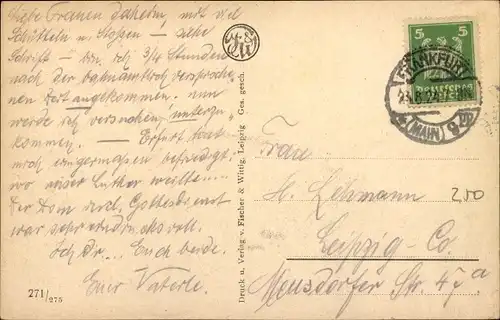 Liebe Frauen daheim, mit viel
Schütteln u. Stoßen – siehe
Schrift – bin ich 3/4 Stunden
nach der bahnamtlich versproche-
nen Zeit angekommen. Nun
werde ich versuchen, unterzu-
kommen. – Erfurt hat
mich einigermaßen befriedigt:
wo unser Luther weilte....
Der Dom incl. Gottesdienst
war sehr eindrucksvoll.
Euch beide.
Euer Vaterle.
271/275
Druck u. Verlag v. Fischer & Wittig, Leipzig Ges. gesch.
5 5
FRANKFURT
(MAIN) 9
Frau
H. Lehmann
Leipzig-Co.
Meusdorfer Str. 47a
200